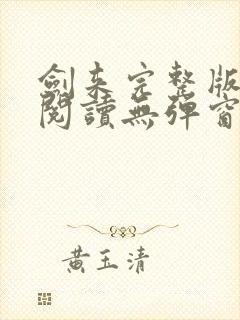 劍来完整版
閱讀無彈窗
黃玉清